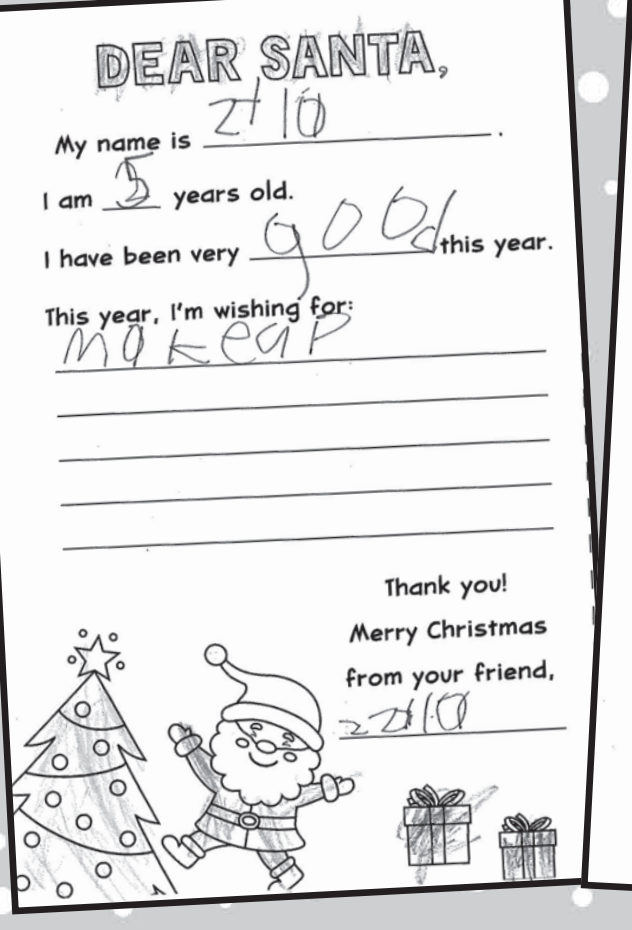 DEAR SANTA,
My name is .
I am 5 years old.
I have been very good this year.
This year, I'm wishing for:
makeap
Thank you!
Merry Christmas
from your friend,